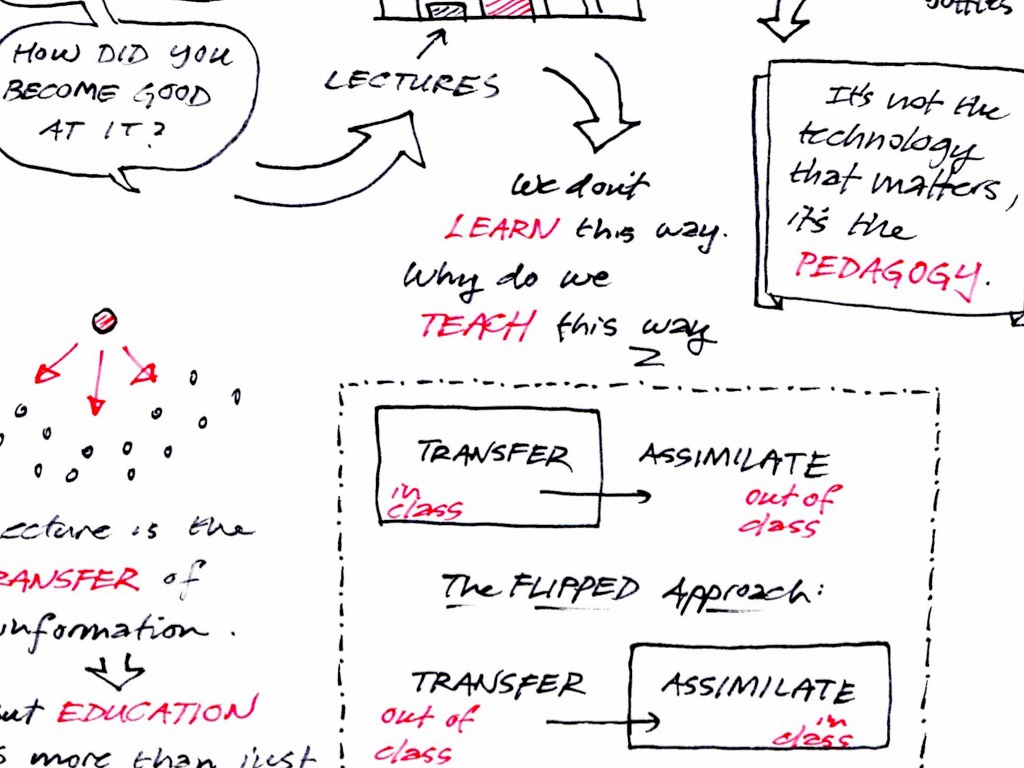 HOW DID YOU
BECOME GOOD
AT IT?
LECTURES
We don't
LEARN this way.
Why do we
TEACH this way
?
It's not the
technology
that matters,
it's the
PEDAGOGY.
ecture is the
RANSFER of
information.
ut EDUCATION
s more than just
TRANSFER
in
class
ASSIMILATE
out of
class
The FLIPPED Approach:
TRANSFER
out of
class
ASSIMILATE
in
class